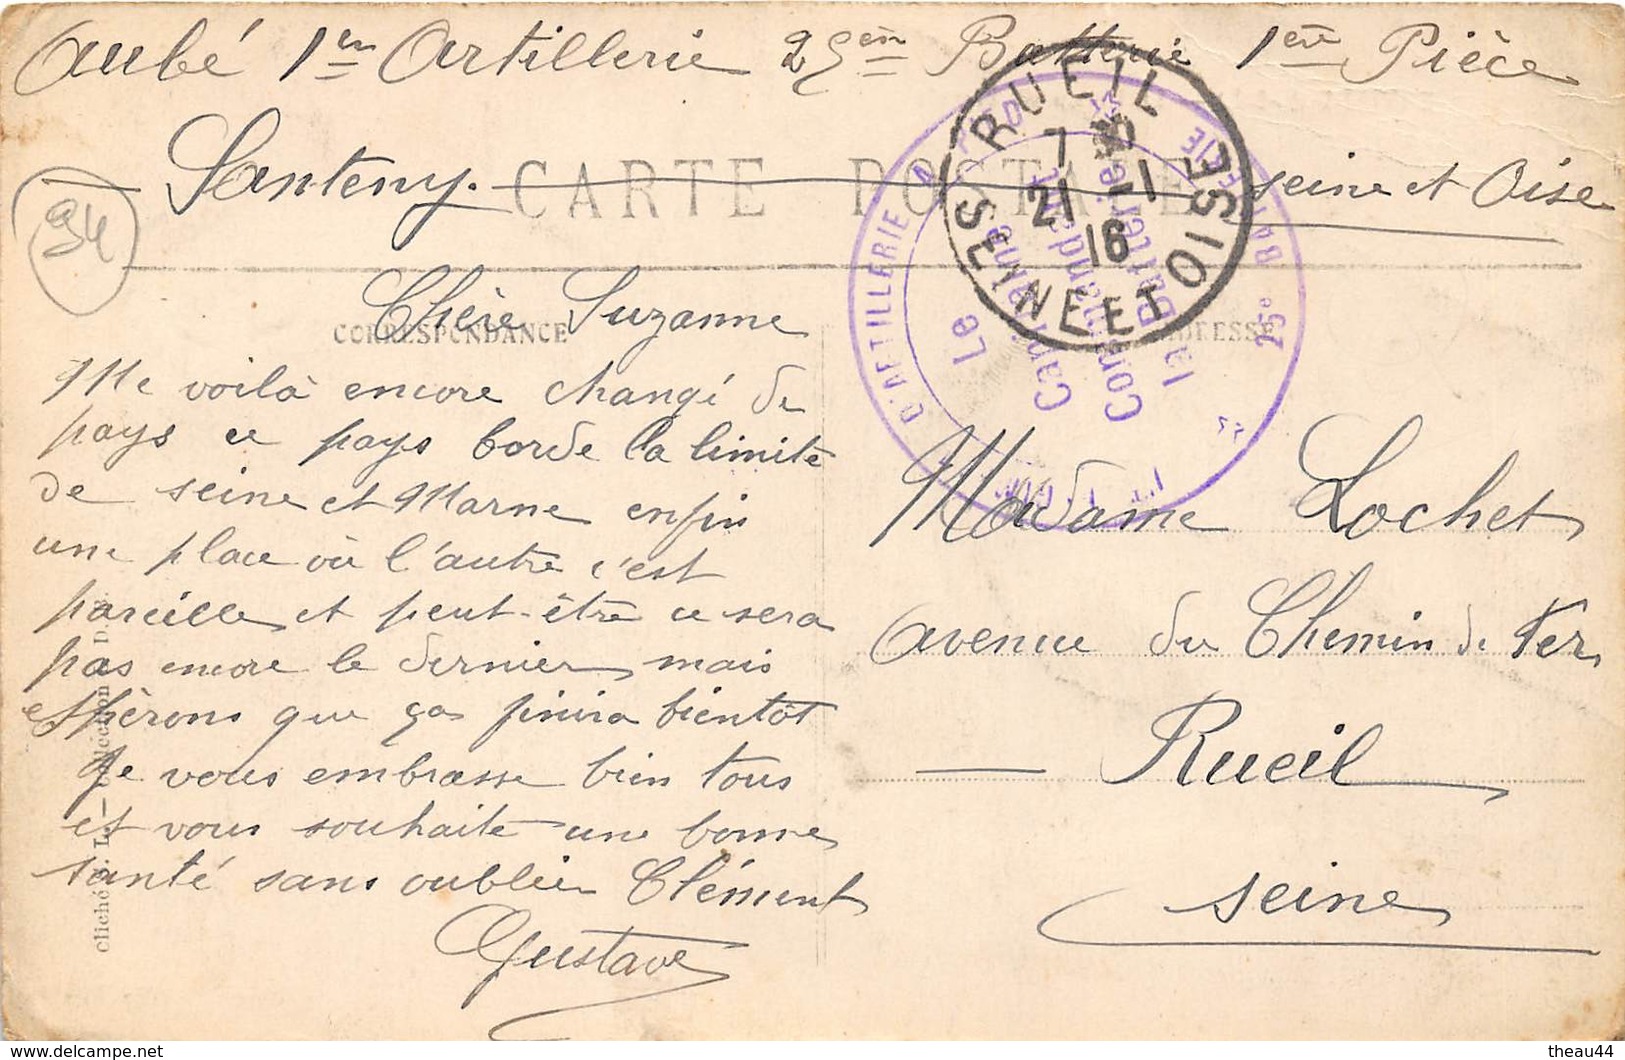 Aubé 1er Artillerie 25ème Batterie 1ère Pièce
Santeny. seine et Oise
94
CARTE POSTALE
CORRESPONDANCE
ADRESSE
Chère Suzanne
Me voilà encore changé de
pays ce pays borde la limite
de seine et Marne enfin
une place où l'autre c'est
pareille et peut-être ce sera
pas encore le dernier mais
espèrons que ça finira bientôt
Je vous embrasse bien tous
et vous souhaite une bonne
santé sans oublier Clément
Gustave
Madame Lochet
Avenue du Chemin de Fer
Rueil
seine
RUEIL
7
21 -1
16
SEINE ET OISE
D'ARTILLERIE
25e BATTERIE
Le
Capitaine
Commandant
la Batterie
Cliché
collection
delcampe.net
theau44